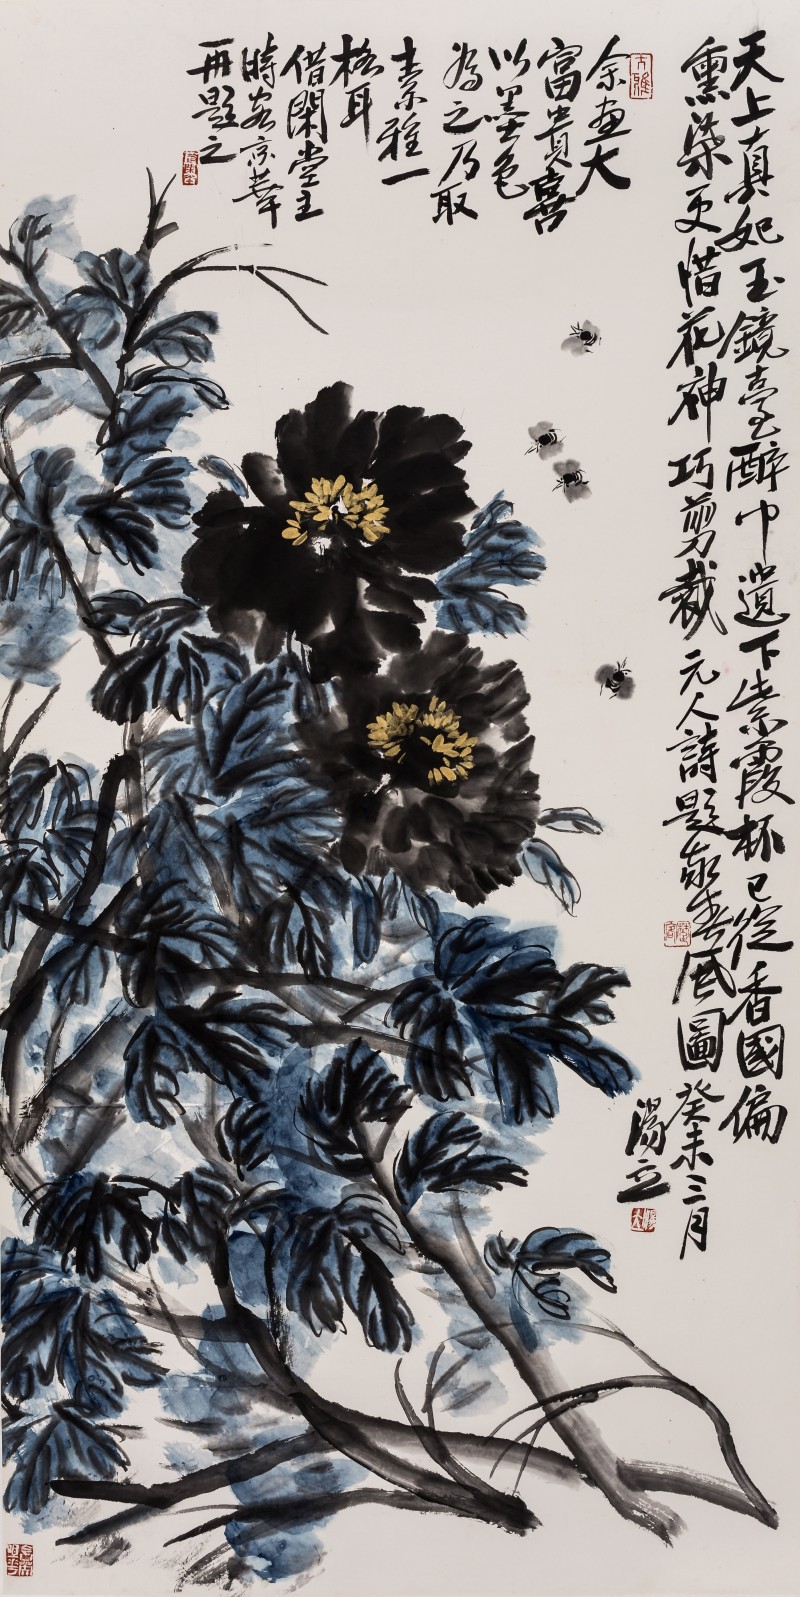 天上真妃玉鏡臺醉中遺下紫霞杯已從香國偏
熏染更惜花神巧剪裁元人詩題家春風圖癸未三月
湯立
余畫大
富貴喜
以墨色
為之乃取
素雅一
格耳
借閑堂主
時客京華
再題之